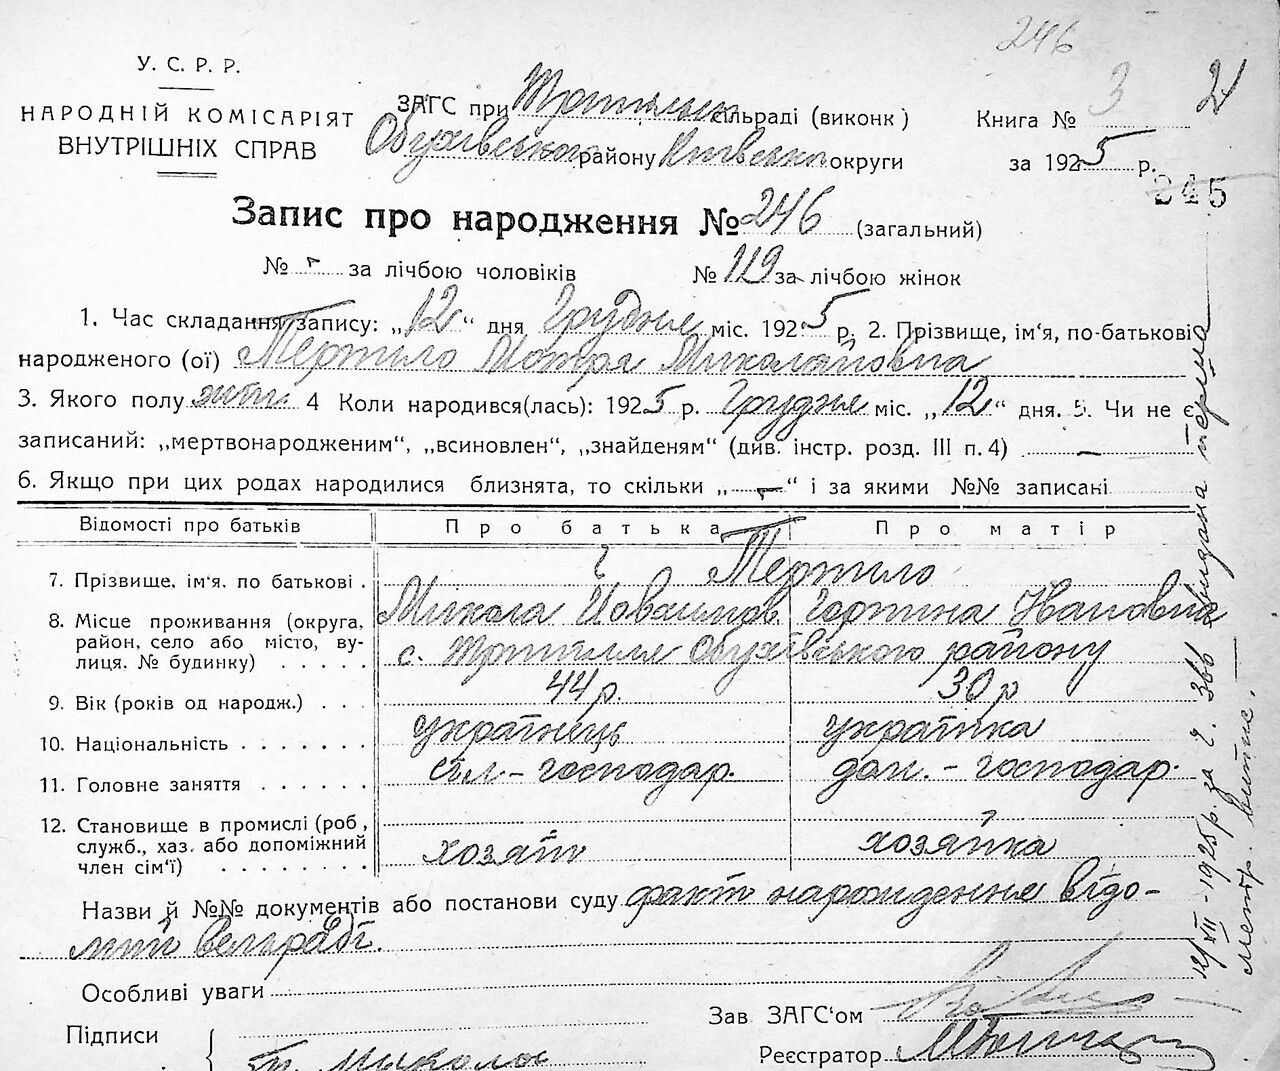 246
У. С. Р. Р.
НАРОДНІЙ КОМІСАРІЯТ
ВНУТРІШНІХ СПРАВ
ЗАГС при Трипільськ сільраді (виконк)
Обухівського району Київська округи
Книга № 3 2
за 1925 р.
245
Запис про народження № 246 (загальний)
№ - за лічбою чоловіків № 119 за лічбою жінок
1. Час складання запису: „12" дня Грудня міс. 1925 р. 2. Прізвище, ім'я, по-батькові
народженого (ої) Тертило Мотря Миколаївна
3. Якого полу жін. 4 Коли народився(лась): 1925 р. Грудня міс. „12" дня. 5. Чи не є
записаний: „мертвонародженим", „всиновлен", „знайденям" (див. інстр. розд. III п. 4) —
6. Якщо при цих родах народилися близнята, то скільки „-" і за якими №№ записані
Відомості про батьків Про батька Про матір
7. Прізвище, ім'я, по батькові . Тертило
Микола Йовхимов. Горпина Івановна
8. Місце проживання (округа,
район, село або місто, ву-
лиця, № будинку) . . . . .
с. Трипілля Обухівського району
9. Вік (років од народж.) . . . 44 р. 30 р
10. Національність . . . . . . . українець українка
11. Головне заняття . . . . . . сіл.-господар. дом.-господар.
12. Становище в промислі (роб.,
служб., хаз. або допоміжний
член сім'ї) . . . . . . . .
хозяїн хозяйка
Назви й №№ документів або постанови суду факт народження відо-
мий Сельраді.
Особливі уваги
Підписи
Зав ЗАГС'ом
Реєстратор
Микола
12/XII-1925 р. за ч. 366 видана перша
метр. витяг. —